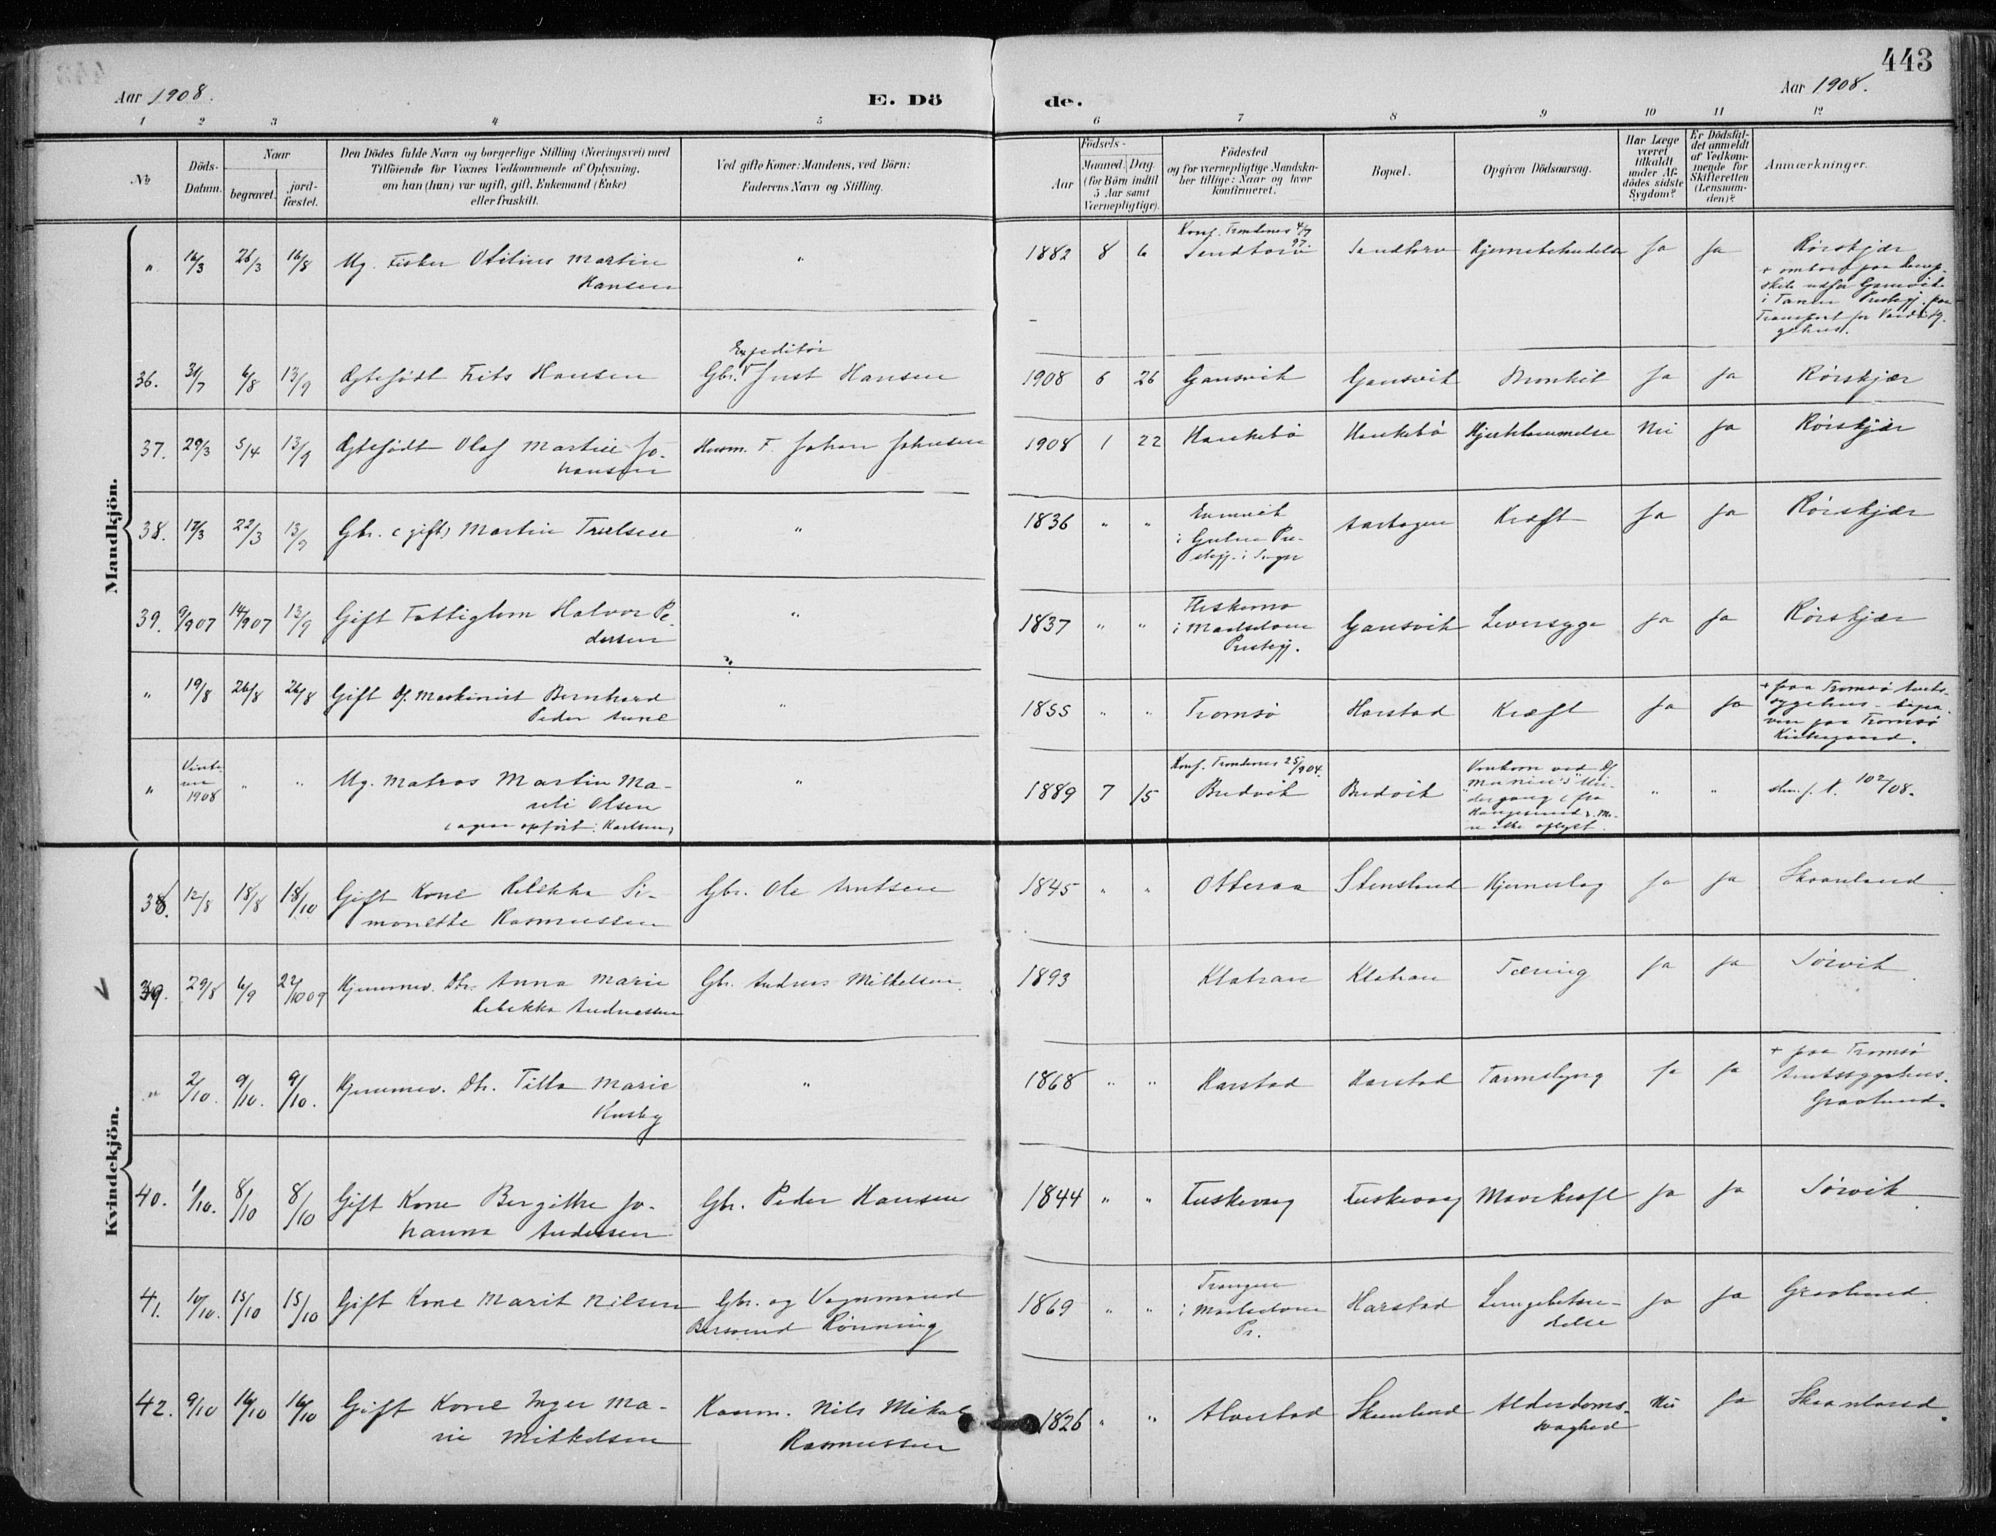 443
Aar 1908.
E. Dö de.
Aar 1908.
1 2 3 4 5 6 7 8 9 10 11 12
No
Döds-
Datum.
Naar
begravet.
jord-
fæstet.
Den Dödes fulde Navn og borgerlige Stilling (Næringsvei) med
Tilföiende for Voxnes Vedkommende af Oplysning,
om han (hun) var ugift, gift, Enkemand (Enke)
eller fraskilt.
Ved gifte Koner: Mandens, ved Börn:
Faderens Navn og Stilling.
Födsels-
Aar
Maaned Dag
(for Börn indtil
5 Aar samt
Værnepligtige).
Födested
og for værnepligtige Mandska-
ber tillige: Naar og hvor
konfirmeret.
Bopæl.
Opgiven Dödsaarsag.
Har Læge
været
tilkaldt
under Af-
dödes sidste
Sygdom?
Er Dödsfal-
det anmeldt
af Vedkom-
mende for
Skifteretten
(Lensman-
den)?
Anmærkninger.
Mandkjön.
" 16/3 26/3 16/8 Ug. Fisker Otilius Martin
Hansen
"
1882 8 6
Konf. Trondenes 4/7
97
Sandtorv Sandtorv Hjernebetændelse Ja Ja Rörskjær
+ ombord paa
i Tanen Prestegj. paa
Transport for
36. 31/7 6/8 13/9 Ægtefödt Frits Hansen
Expeditör
Gbr. Just Hansen
1908 6 26 Gansvik Gansvik Bronkit Ja Ja Rörskjær
37. 29/3 5/4 13/9 Ægtefödt Olaf Martin Jo-
hansen
Husm. F. Johan Johnsen
1908 1 22 Harkebö Harkebö Hjerklemmelse Nei Ja Rörskjær
38. 17/3 22/3 13/9 Gbr. (gift) Martin Truelsen
"
1836 " "
i Gulen Pre-
stegj. i Sogn
Aarbogen Kræft Ja Ja Rörskjær
39. 9/907 14/907 13/9 Gift Fattiglem Halvor Pe-
dersen
"
1837 " "
Fleskemo
i Maalselven
Prestegj.
Gansvik Leversyge Ja Ja Rörskjær
" 19/8 26/8 26/8 Gift Maskinist Bernhard
Peder Aune
"
1855 " " Tromsö Harstad Kræft Ja Ja
+ paa Tromsö Amts-
sygehus.
paa Tromsö
Kirkegaard.
" Vinte-
ren
1908 " " Ug. Matros Martin Ma-
reli Olsen
(ogsaa opfört: Karlsen)
"
1889 7 15
Konf. Trondenes 25/904.
Bredvik Bredvik
Omkom ved
Un-
dergang fra
Haugesund.
ikke oplyst.
" " 102/08.
Kvindekjön.
38. 12/8 18/8 18/10 Gift Kone Rebekka Si-
monette Rasmussen
Gbr. Ole Arntsen
1845 " " Otteraa Stensland Hjerneslag Ja Ja Skaanland.
39. 29/8 6/9 22/1009 Hjemmev. Dtr. Anna Marie
Rebekka Andreassen
Gbr. Andreas Mikkelsen
1893 Klatran Klatran Tæring Ja Ja Sörvik.
" 2/10. 9/10. 9/10. Hjemmev. Dtr. Tilla Marie
Kurby
"
1868 " " Harstad Harstad Tarmslyng Ja Ja
+ paa Tromsö
Amtssygehus.
Graalund.
40. 1/10. 8/10 8/10 Gift Kone Bergitte Jo-
hanna Andersen
Gbr. Peder Hansen
1844 " " Fuskevaag Fuskevaag Mavekræft Ja Ja Sörvik.
41. 10/10. 15/10 15/10 Gift Kone Marit Nilsen
Gbr. og Vognmand
Bersvend Rönning
1869 " "
Trangen
i Maalselven
Pr.
Harstad Lungebetæn-
delse
Ja Ja Graalund.
42. 9/10 16/10 16/10 Gift Kone Inger Ma-
rie Mikkelsen
Kaarm. Nils Mikal
Rasmussen
1826 " " Alvestad Skaanland Alderdoms-
svaghed
Nei Ja Skaanland.